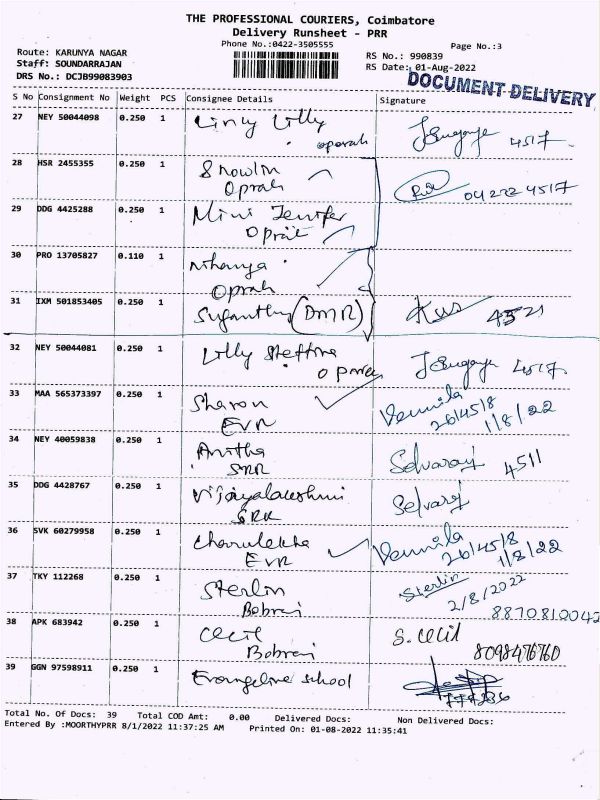 THE PROFESSIONAL COURIERS, Coimbatore
Delivery Runsheet - PRR
Phone No.:0422-3505555
Page No.:3
Route: KARUNYA NAGAR
Staff: SOUNDARRAJAN
DRS No.: DCJB99083903
RS No.: 990839
RS Date: 01-Aug-2022
DOCUMENT DELIVERY
S No Consignment No Weight PCS Consignee Details Signature
27 NEY 50044098 0.250 1 Lincy Lilly
oprah 4517
28 HSR 2455355 0.250 1 Snowlin
Oprah 04222 4517
29 DDG 4425288 0.250 1 Mini Jenifer
Oprah
30 PRO 13705827 0.110 1 Nithanya
Oprah
31 IXM 501853405 0.250 1 Suganthy (DMR) 4521
32 NEY 50044081 0.250 1 Lilly Steffina
oprah 4517
33 MAA 565373397 0.250 1 Sharon Vennila
EVR 26/45/8
1/8/22
34 NEY 40059838 0.250 1 Anitha Selvaraj 4511
SRR
35 DDG 4428767 0.250 1 Vijayalakshmi Selvaraj
SRR
36 SVK 60279958 0.250 1 Charulekha Vennila
EVR 26/45/8
1/8/22
37 TKY 112268 0.250 1 Sterlin Sterlin
2/8/2022
Bobrai 8870810042
38 APK 683942 0.250 1 Cecil S. Cecil
Bobrai 8098476760
39 GGN 97598911 0.250 1 Evangeline school
Total No. Of Docs: 39 Total COD Amt: 0.00 Delivered Docs: Non Delivered Docs:
Entered By :MOORTHYPRR 8/1/2022 11:37:25 AM Printed On: 01-08-2022 11:35:41